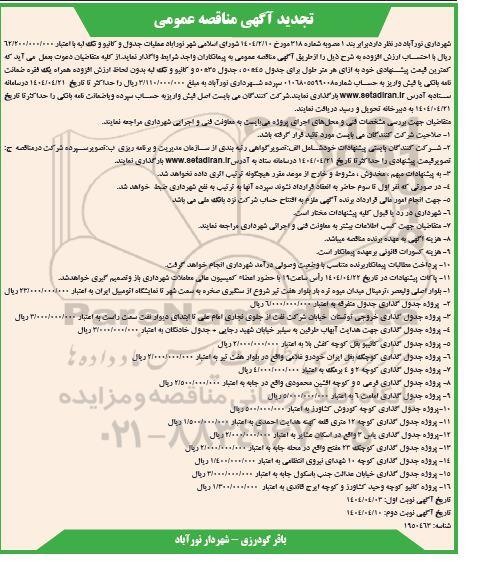 تجدید آگهی مناقصه عمومی
شهرداری نورآباد در نظر دارد برابر بند ۱ مصوبه شماره ۳۱۸ مورخ ۱۴۰۴/۲/۱۰ شورای اسلامی شهر نورآباد عملیات جدول و کانیو و تک لبه با اعتبار ۶۲/۲۰۰/۰۰۰/۰۰۰
ریال با احتساب ارزش افزوده به شرح ذیل را از طریق آگهی مناقصه عمومی به پیمانکاران واجد شرایط واگذار نماید. از کلیه متقاضیان دعوت بعمل می آید که
کمترین قیمت پیشنهادی خود به ازای هر متر طول برای جدول ۴۵*۵۰ ، جدول ۳۵*۵۰ و کانیو و تک لبه بدون لحاظ ارزش افزوده همراه یک فقره ضمانت
نامه بانکی یا فیش واریز به حساب شماره ۰۱۰۶۸۰۵۵۹۹۰۰۸ سپرده شهرداری نورآباد به مبلغ ۳/۱۱۰/۰۰۰/۰۰۰ ریال را حداکثر تا تاریخ ۱۴۰۴/۰۴/۲۱ در سامانه
ستاد به آدرس www.setadiran.ir بارگذاری نمایند. شرکت کنندگان می بایست اصل فیش واریز به حساب سپرده و یا ضمانت نامه بانکی را حداکثر تا تاریخ
۱۴۰۴/۰۴/۲۱ به دبیرخانه تحویل و رسید دریافت نمایند.
متقاضیان جهت بررسی مشخصات فنی و محل های اجرای پروژه می بایست به معاونت فنی و اجرایی شهرداری مراجعه نمایند.
۱- صلاحیت شرکت کنندگان می بایست مورد تائید قرار گرفته باشد.
۲- شرکت کنندگان بایستی پیشنهادات خود شامل الف: تصویر گواهی رتبه بندی از سازمان مدیریت و برنامه ریزی ب: تصویر سپرده شرکت در مناقصه ج:
تصویر قیمت پیشنهادی را حداکثر تا تاریخ ۱۴۰۴/۰۴/۲۱ در سامانه ستاد به آدرس www.setadiran.ir بارگذاری نمایند.
۳- به پیشنهادات مبهم ، مخدوش ، مشروط و خارج از موعد مقرر هیچگونه ترتیب اثری داده نخواهد شد.
۴- در صورتی که نفر اول تا سوم حاضر به انعقاد قرارداد نشوند سپرده آنها به ترتیب به نفع شهرداری ضبط خواهد شد.
۵- جهت انجام امور مالی قرارداد برنده آگهی ملزم به افتتاح حساب شرکت نزد بانک ملی می باشد
۶- شهرداری در رد یا قبول کلیه پیشنهادات مختار است.
۷- متقاضیان جهت کسب اطلاعات بیشتر به معاونت فنی و اجرائی شهرداری مراجعه نمایند.
۸- هزینه آگهی به عهده برنده مناقصه میباشد.
۹- هزینه کسورات قانونی برعهده پیمانکار است.
۱۰- پرداخت مطالبات پیمانکار برنده متناسب با وضعیت وصولی درآمد شهرداری انجام خواهد گرفت.
۱۱- پاکات پیشنهادات در تاریخ ۱۴۰۴/۰۴/۲۲ رأس ساعت ۱۹ با حضور اعضاء کمیسیون عالی معاملات شهرداری باز و تصمیم گیری خواهد شد.
۱- بلوار اصلی ولیعصر ،ترمینال میدان میوه تره بار بلوار هفت تیر شروع از سنگبری صخره به سمت شهر تا نمایشگاه اتومبیل ایران به اعتبار ۲۳/۰۰۰/۰۰۰/۰۰۰ ریال
۲- پروژه جدول گذاری جدول متفرقه به اعتبار ۶/۰۰۰/۰۰۰/۰۰۰ ریال
۳- پروژه جدول گذاری خروجی توتستان خیابان شرکت نفت از جلوی تجاری امام علی تا ابتدای دیوار نفت سمت راست به اعتبار ۳/۰۰۰/۰۰۰/۰۰۰ ریال
۴- پروژه جدول گذاری جهت هدایت آبهای طرفین به سیلبر خیابان شهید رجایی + جدول خادگان به اعتبار ۳/۰۰۰/۰۰۰/۰۰۰ ریال
۵- پروژه جدول گذاری کانیو بغل کوچه کفش بلا به اعتبار ۲/۰۰۰/۰۰۰/۰۰۰ ریال
۶- پروژه جدول گذاری کوچک بغل ایران خودرو غلامی واقع در بلوار هفت تیر به اعتبار ۲/۰۰۰/۰۰۰/۰۰۰ ریال
۷- پروژه جدول گذاری کوچه ۲ و ۴ برمک به اعتبار ۴/۰۰۰/۰۰۰/۰۰۰ ریال
۸- پروژه جدول گذاری فرعی ۵ و کوچه افشین محمودی واقع در جابه به اعتبار ۲/۵۰۰/۰۰۰/۰۰۰ ریال
۹- پروژه جدول گذاری امامت ۶ به اعتبار ۵/۰۰۰/۰۰۰/۰۰۰ ریال
۱۰-پروژه جدول گذاری کوچه کوروش کشاورز به اعتبار ۵۰۰/۰۰۰/۰۰۰ ریال
۱۱- پروژه جدول گذاری کوچه ۱۲ متری قلعه کهنه هدایت احمدی به اعتبار ۱/۵۰۰/۰۰۰/۰۰۰ ریال
۱۲-پروژه جدول گذاری یاس ۳ واقع در اسکان عشایر به اعتبار ۲/۰۰۰/۰۰۰/۰۰۰ ریال
۱۳- پروژه جدول گذاری کوچک ۲۳ مفتح واقع در محله جابه به اعتبار ۲/۰۰۰/۰۰۰/۰۰۰ ریال
۱۴- پروژه جدول گذاری کوچه ۱۰ شهدای نیروی انتظامی به اعتبار ۱/۴۰۰/۰۰۰/۰۰۰ ریال
۱۵- پروژه جدول گذاری خیابان عدالت جنب باسکول جابه به اعتبار ۳/۰۰۰/۰۰۰/۰۰۰ ریال
۱۶- پروژه کانیو کوچه وحید کشاورز و کوچه ایرج قائدی به اعتبار ۱/۳۰۰/۰۰۰/۰۰۰ ریال
تاریخ آگهی نوبت اول: ۱۴۰۴/۰۴/۰۳
تاریخ آگهی نوبت دوم: ۱۴۰۴/۰۴/۱۰
شناسه: ۱۹۵۰۴۶۳
باقر گودرزی – شهردار نورآباد
۰۲۱-۸۸۳۴۹۶۷۰-۵